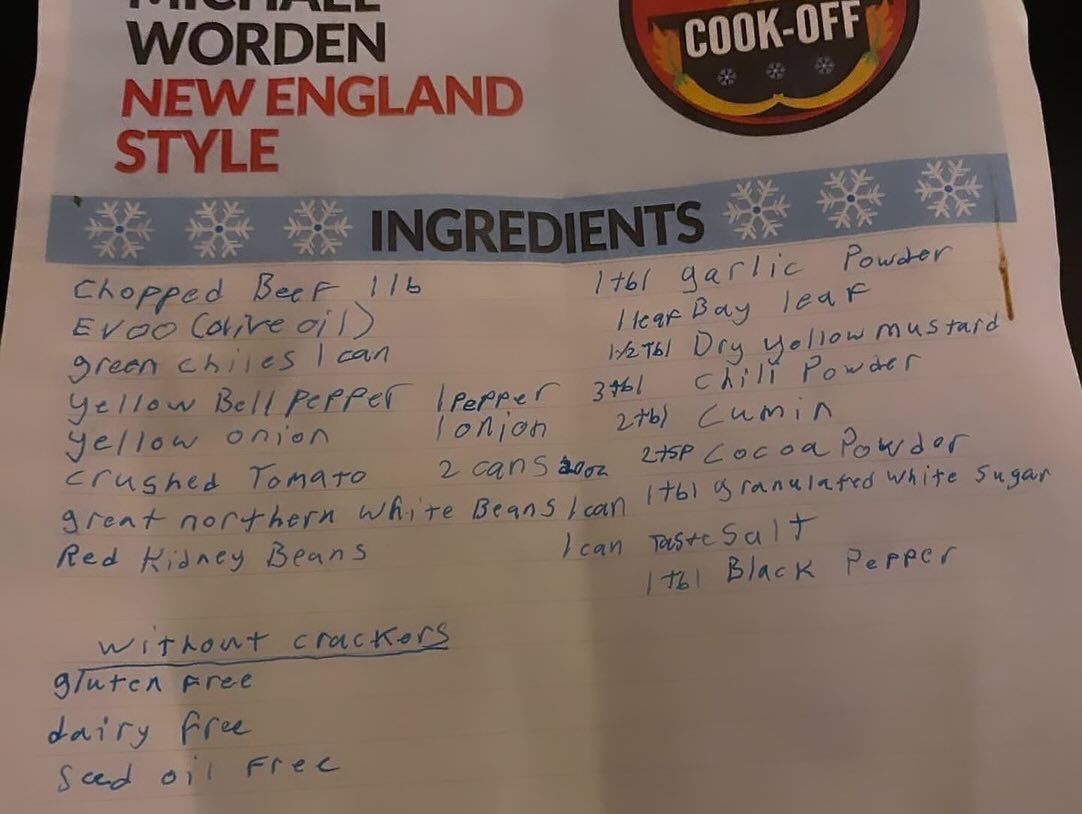 MICHAEL
WORDEN
NEW ENGLAND
STYLE
COOK-OFF
INGREDIENTS
Chopped Beef 1 lb
EVOO (olive oil)
green chiles 1 can
Yellow Bell pepper 1 pepper
yellow onion 1 onion
crushed Tomato 2 cans 20oz
great northern white Beans 1 can
Red Kidney Beans 1 can
1 tbl garlic Powder
1 leaf Bay leaf
1 1/2 Tbl Dry yellow mustard
3 tbl Chili Powder
2 tbl Cumin
2 tsp Cocoa Powder
1 tbl granulated white Sugar
Taste Salt
1 tbl Black Pepper
without crackers
gluten Free
dairy free
Seed oil Free